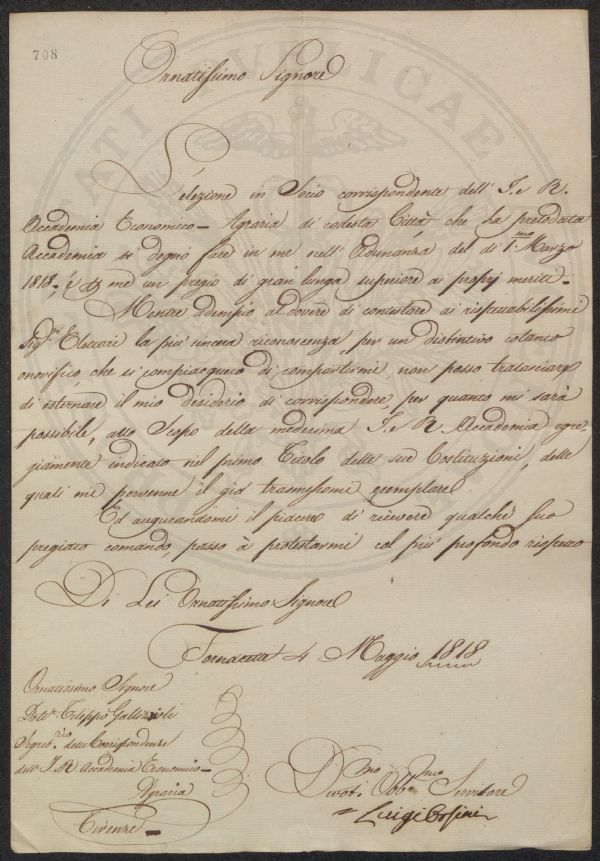 708
Ornatissimo Signore
L'elezione in Socio corrispondente dell'I. e R.
Accademia Economico-Agraria di codesta Città che ha prelodata
Accademia si degnò fare in me nell'Adunanza del dì 1.mo Marzo
1818., è per me un pregio di gran lunga superiore ai proprj meriti.-
Mentre adempio al dovere di contestare ai rispettabilissimi
Sigg.ri Elettori la più sincera riconoscenza per un distintivo cotanto
onorifico, che si compiacquero di compartirmi non posso tralasciare
di esternare il mio desiderio di corrispondere, per quanto mi sarà
possibile, allo Scopo della medesima I. e R. Accademia egre
giamente indicato nel primo Titolo delle sue Costituzioni, delle
quali me pervenne il già trasmessomi esemplare.
Ed augurandomi il piacere di ricevere qualche suo
pregiato comando, passo à protestarmi col più profondo rispetto
Di Lei Ornatissimo Signore
Fornacette 4 Maggio 1818
Ornatissimo Signore
Dott.r Filippo Gallizioli
Segret.rio delle Corrispondenze
dell'I. R. Accademia Economico-
Agraria
Firenze-
Devot.mo Obb.mo Servitore
Luigi
PUBLICAE